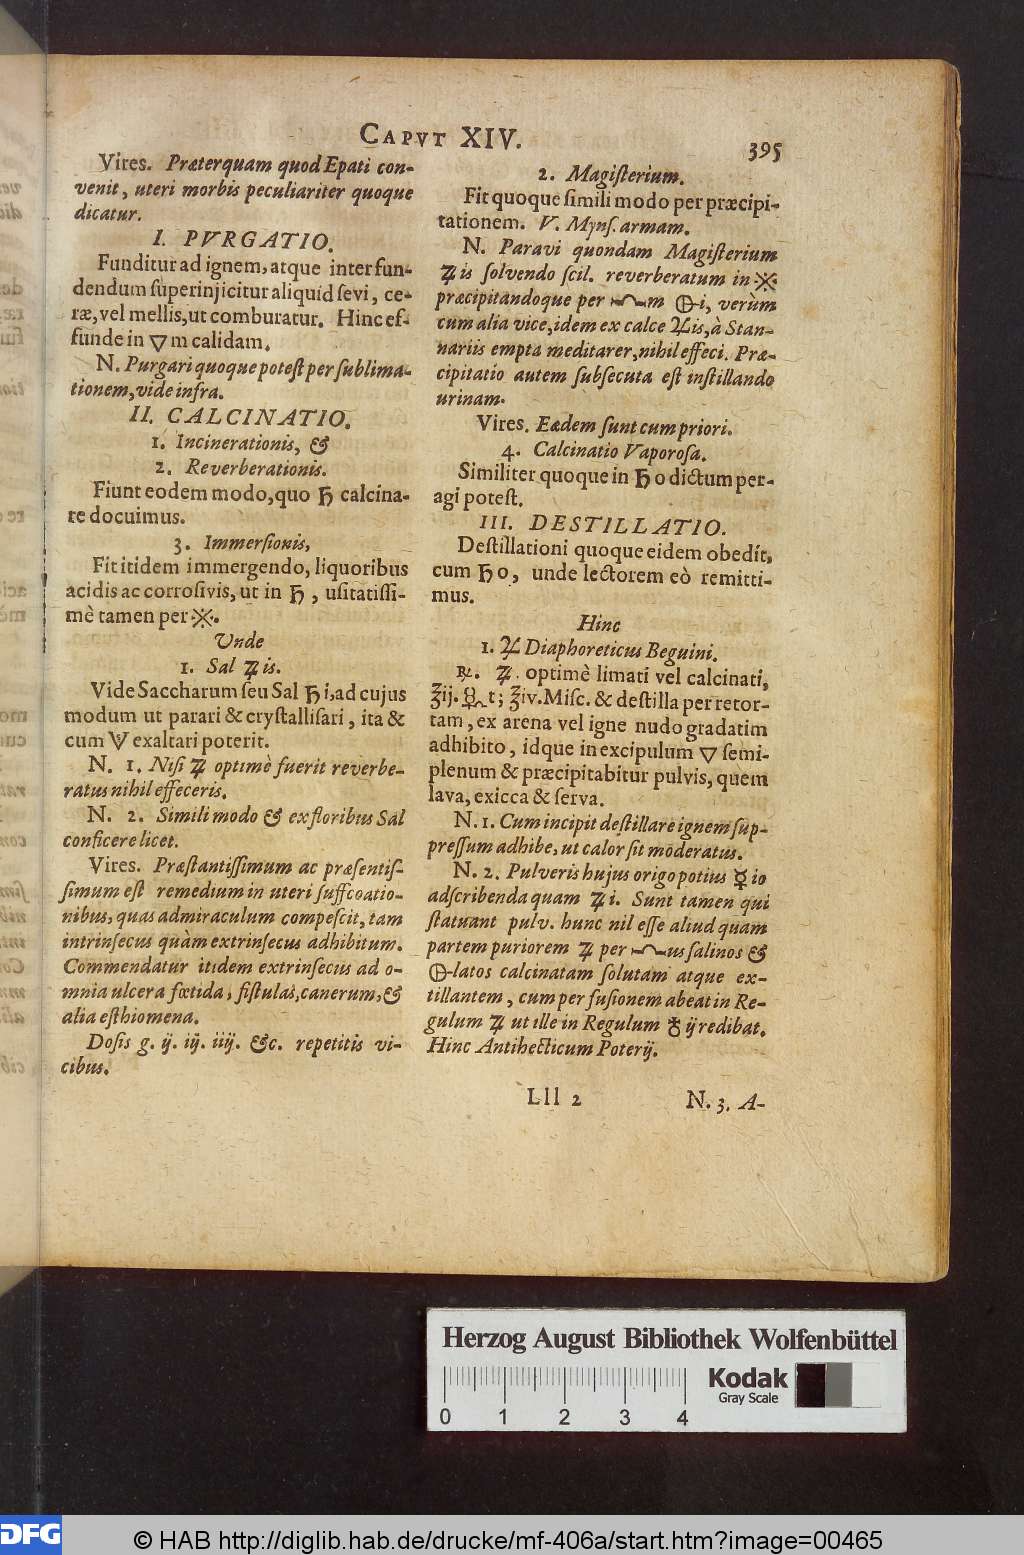 CAPVT XIV.
395
Vires. Præterquam quod Epati con-
venit, uteri morbis peculiariter quoque
dicatur.
I. PVRGATIO.
Funditur ad ignem, atque inter fun-
dendum superinjicitur aliquid sevi, ce-
ræ, vel mellis, ut comburatur. Hinc ef-
funde in 🜄m calidam.
N. Purgari quoque potest per sublima-
tionem, vide infra.
II. CALCINATIO.
1. Incinerationis, &
2. Reverberationis.
Fiunt eodem modo, quo ♄ calcina-
re docuimus.
3. Immersionis,
Fit itidem immergendo, liquoribus
acidis ac corrosivis, ut in ♄, usitatissi-
mè tamen per ※.
Unde
1. Sal ♃is.
Vide Saccharum seu Sal ♄i, ad cujus
modum ut parari & crystallisari, ita &
cum exaltari poterit.
N. 1. Nisi ♃ optimè fuerit reverbe-
ratus nihil effeceris.
N. 2. Simili modo & ex floribus Sal
conficere licet.
Vires. Præstantissimum ac præsentis-
simum est remedium in uteri suffcoatio-
nibus, quas admiraculum compescit, tam
intrinsecus quàm extrinsecus adhibitum.
Commendatur itidem extrinsecus ad o-
mnia ulcera fœtida, fistulas, canerum, &
alia esthiomena.
Dosis g. ij. iij. iiij. &c. repetitis vi-
cibus.
2. Magisterium.
Fit quoque simili modo per præcipi-
tationem. V. Myns. armam.
N. Paravi quondam Magisterium
♃is solvendo scil. reverberatum in ※
præcipitandoque per m i, verùm
cum alia vice, idem ex calce ♃is, à Stan-
nariis empta meditarer, nihil effeci. Præ-
cipitatio autem subsecuta est instillando
urinam.
Vires. Eædem sunt cum priori.
4. Calcinatio Vaporosa.
Similiter quoque in ♄o dictum per-
agi potest.
III. DESTILLATIO.
Destillationi quoque eidem obedit,
cum ♄o, unde lectorem eò remitti-
mus.
Hinc
1. ♃ Diaphoreticus Beguini.
℞. ♃. optimè limati vel calcinati,
℥ij. t; ℥iv. Misc. & destilla per retor-
tam, ex arena vel igne nudo gradatim
adhibito, idque in excipulum 🜄 semi-
plenum & præcipitabitur pulvis, quem
lava, exicca & serva.
N. 1. Cum incipit destillare ignem sup-
pressum adhibe, ut calor sit moderatus.
N. 2. Pulveris hujus origo potius ☿io
adscribenda quam ♃i. Sunt tamen qui
statuant pulv. hunc nil esse aliud quam
partem puriorem ♃ per us salinos &
latos calcinatam solutam atque ex-
tillantem, cum per fusionem abeat in Re-
gulum ♃ ut ille in Regulum ♁ij redibat.
Hinc Antihecticum Poterij.
Lll 2
N. 3. A-
Herzog August Bibliothek Wolfenbüttel
Kodak
Gray Scale
0 1 2 3 4
DFG
© HAB http://diglib.hab.de/drucke/mf-406a/start.htm?image=00465